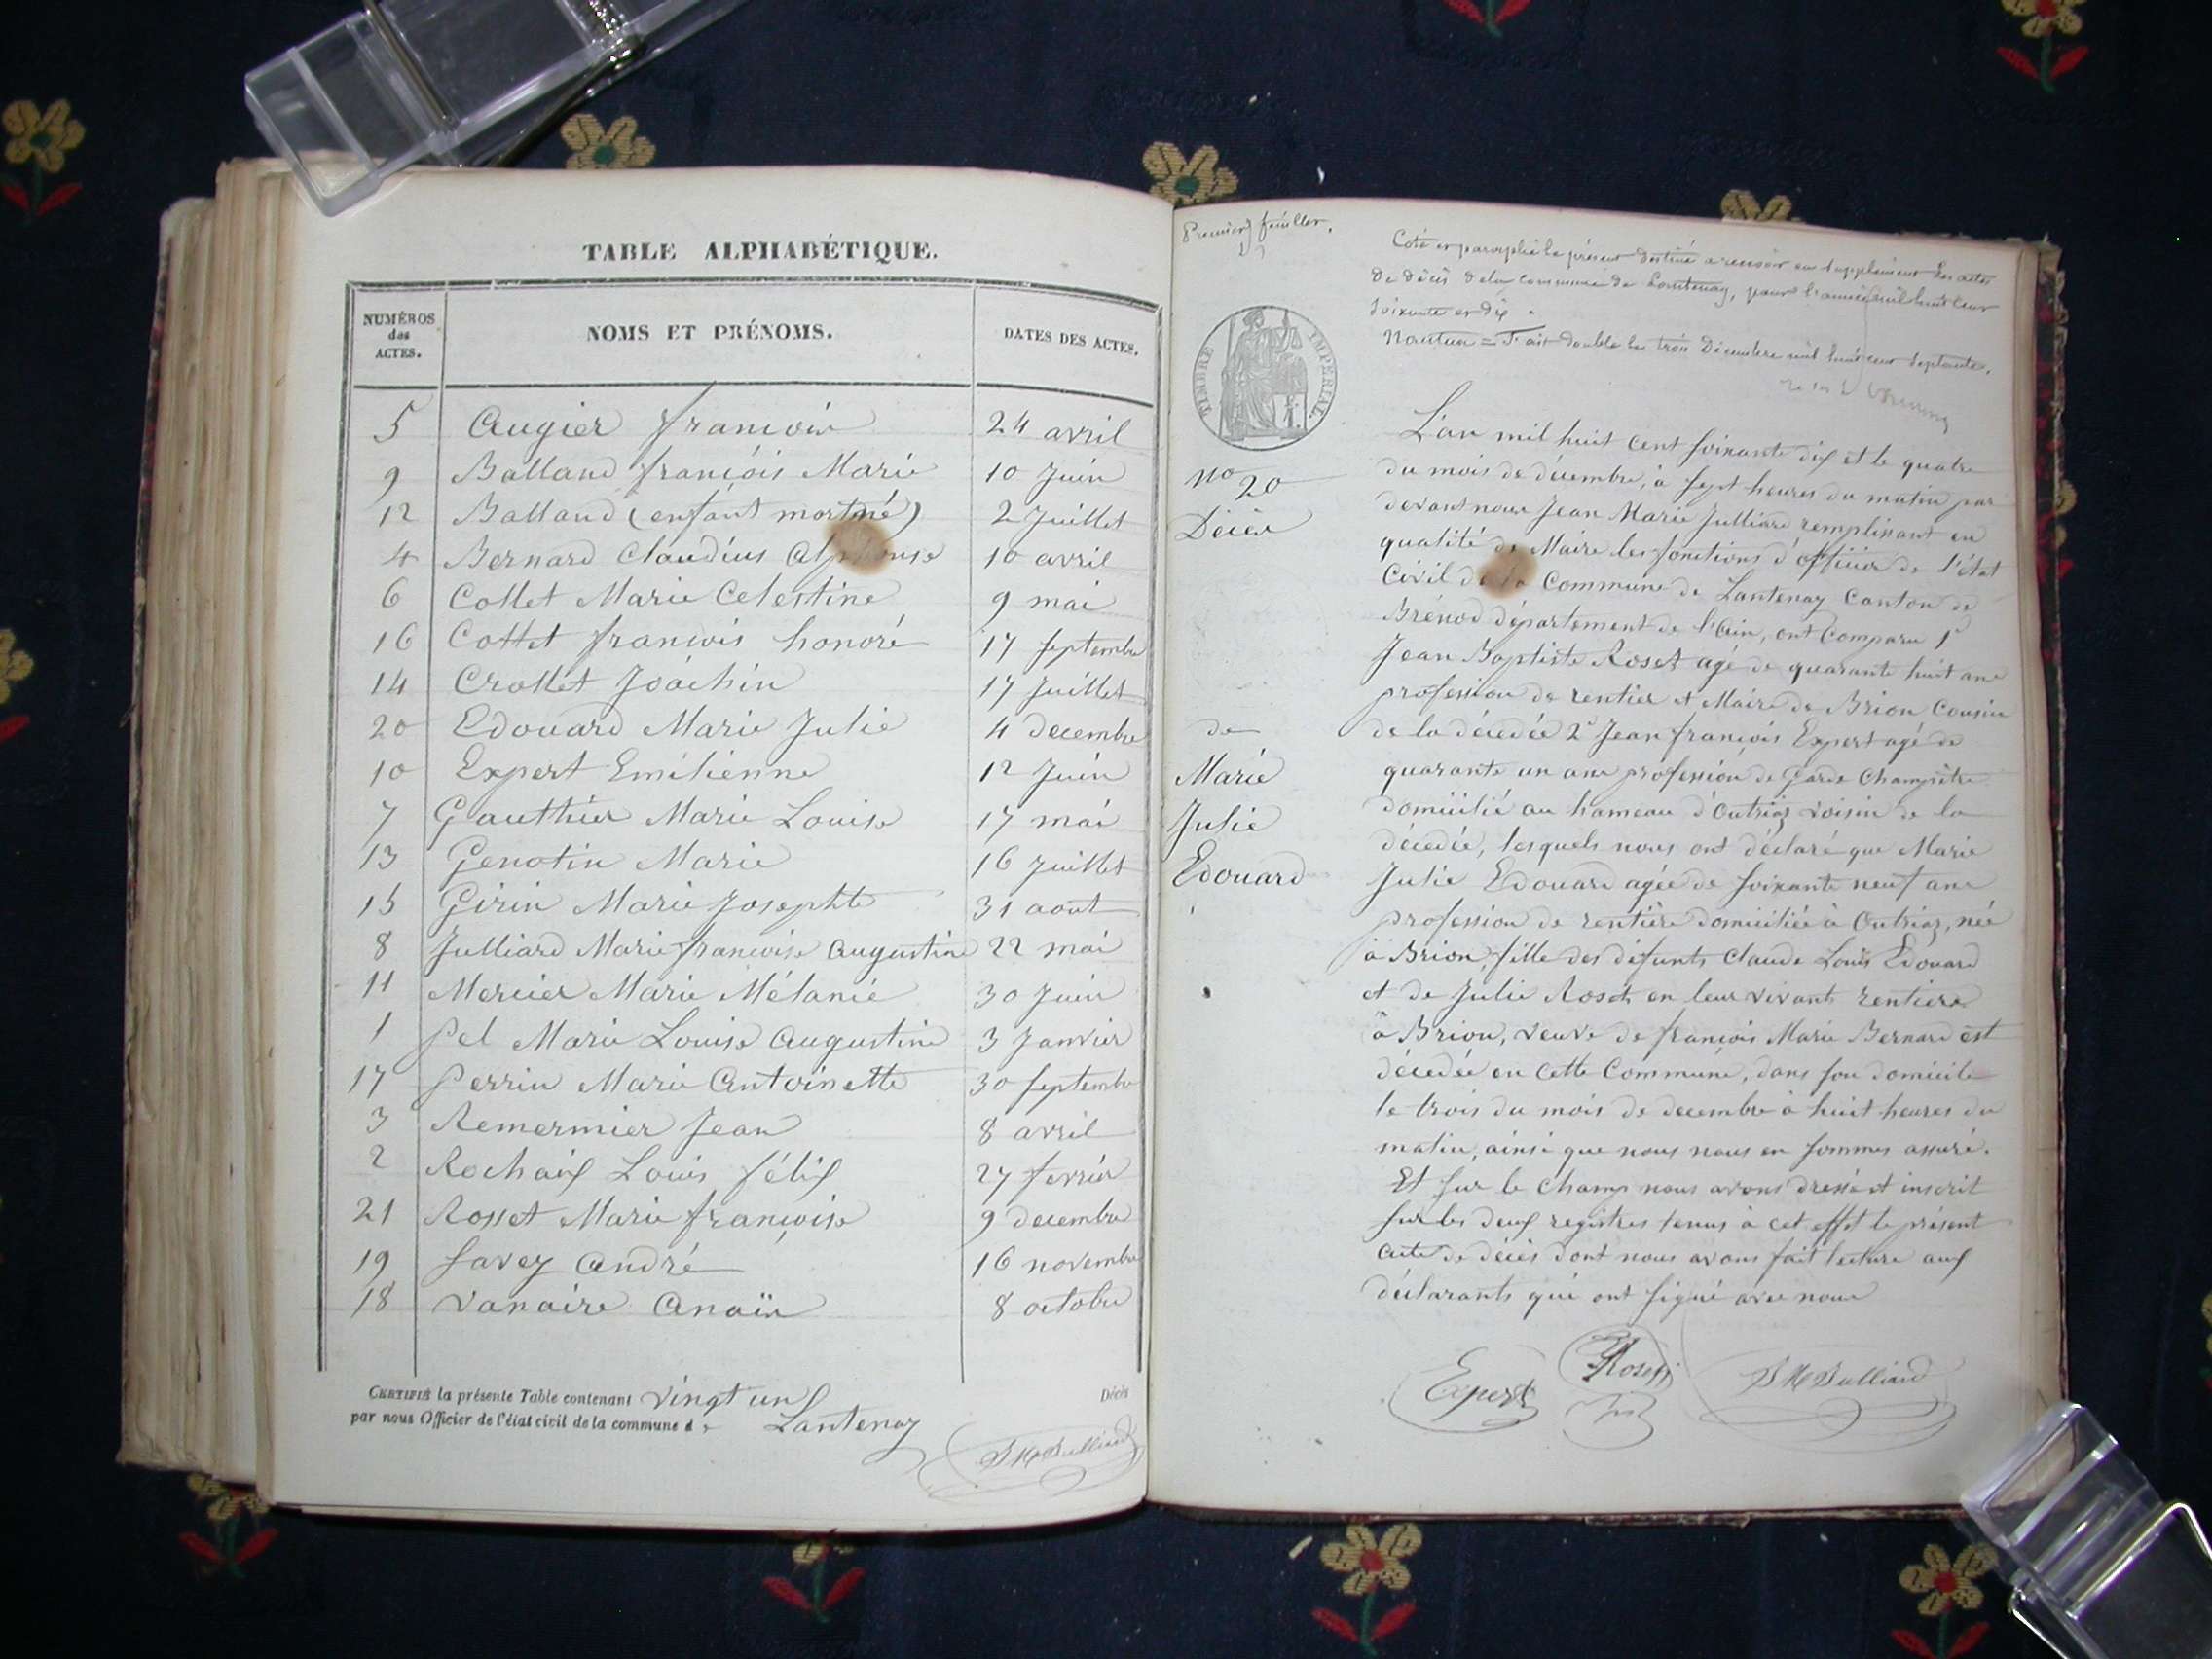 TABLE ALPHABÉTIQUE.
NUMÉROS
des
ACTES.
NOMS ET PRÉNOMS.
DATES DES ACTES.
5 Augier françois 24 avril
9 Balland françois Marie 10 Juin
12 Balland (enfant mort né) 2 Juillet
4 Bernard Claudius Alphonse 10 avril
6 Collet Marie Celestine 9 mai
16 Cottet françois honoré 17 septembre
14 Crollet Joachin 17 Juillet
20 Edouard Marie Julie 4 decembre
10 Expert Emélienne 12 Juin
7 Gauthier Marie Louise 17 mai
13 Genotin Marie 16 Juillet
15 Girin Marie Josephte 31 aout
8 Julliard Marie françoise Augustine 22 mai
11 Mercier Marie Mélanie 30 Juin
1 Pel Marie Louise Augustine 3 Janvier
17 Perrin Marie Antoinette 30 septembre
3 Remermier Jean 8 avril
2 Rochaix Louis félix 27 fevrier
21 Rosset Marie françoise 9 decembre
19 Savey André 16 novembre
18 Vanaire Anaïs 8 octobre
CERTIFIÉ la présente Table contenant vingt un Décès
par nous Officier de l'état civil de la commune de Lantenay
J M Julliard
Premier feuillet.
Coté et paraphé le présent destiné a recevoir en supplément les actes
de décès de la commune de Lantenay, pour l'année mil huit cent
soixante et dix.
Nantua = Fait double le trois Décembre mil huit cent septante.
TIMBRE IMPÉRIAL.
No 20
Décès
de
Marie
Julie
Edouard
L'an mil huit cent soixante dix et le quatre
du mois de décembre, à sept heures du matin par
devant nous Jean Marie Julliard remplissant en
qualité de Maire les fonctions d'officier de l'état
Civil de la Commune de Lantenay Canton de
Brénod département de l'Ain, ont Comparu 1°
Jean Baptiste Roset agé de quarante huit ans
profession de rentier et Maire de Brion Cousin
de la décédée 2° Jean françois Expert agé de
quarante un ans profession de Garde Champêtre
domicilié au hameau d'Outriaz voisin de la
décédée, lesquels nous ont déclaré que Marie
Julie Edouard agée de soixante neuf ans
profession de rentière domiciliée à Outriaz, née
à Brion, fille des défunts Claude Louis Edouard
et de Julie Roset en leur vivants rentiers
à Brion, veuve de françois Marie Bernard est
décédée en cette Commune, dans son domicile
le trois du mois de decembre à huit heures du
matin, ainsi que nous nous en sommes assuré.
Et sur le champ nous avons dressé et inscrit
sur les deux registres tenus à cet effet le présent
acte de décès dont nous avons fait lecture aux
déclarants qui ont signé avec nous
Expert Roset J M Julliard